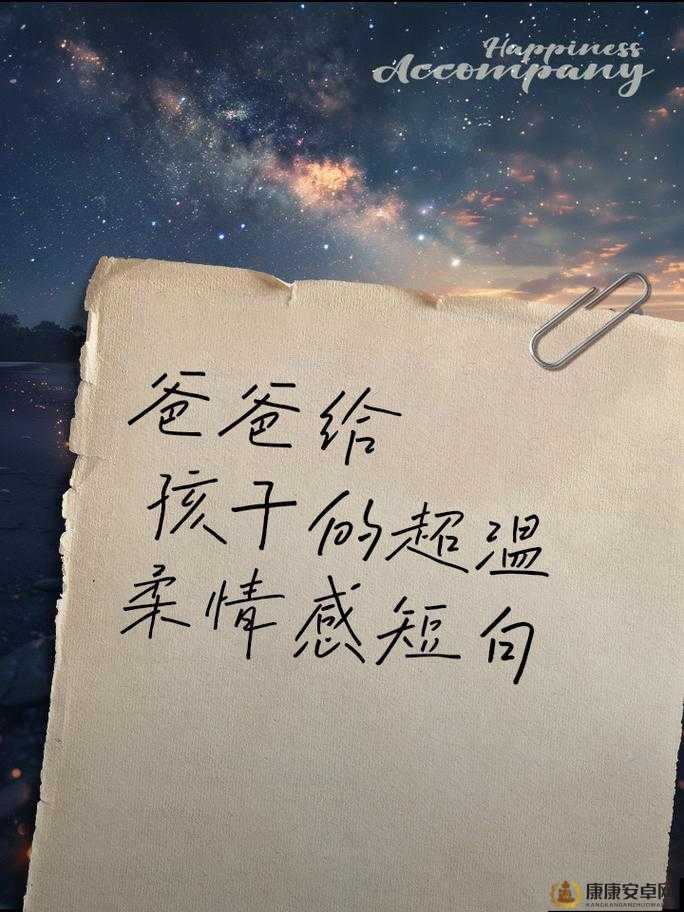 Happiness
Accompany
爸爸给
孩子的超温
柔情感短句
康康安卓网
KANGKANGANZHUOWANG